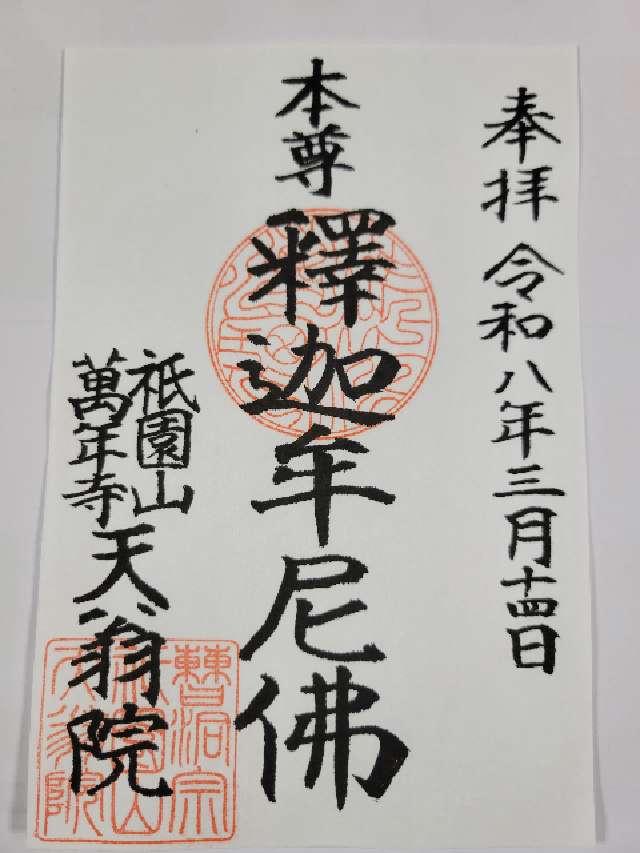 奉拝 令和八年三月十四日
本尊
釋迦牟尼佛
祇園山
萬年寺
天翁院
曹洞宗